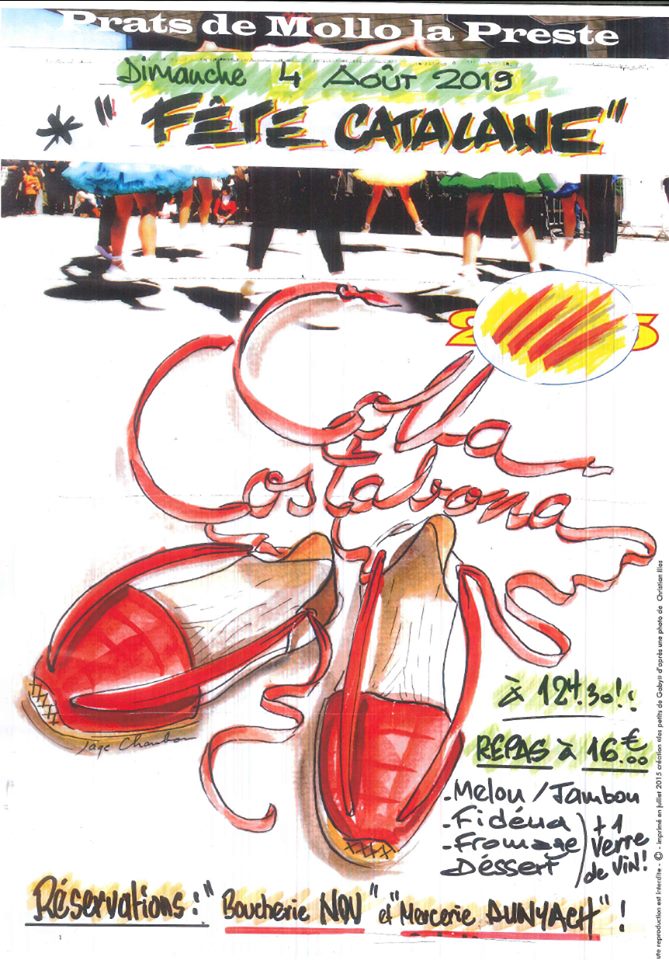 Prats de Mollo la Preste
Dimanche 4 Août 2019
* "FÊTE CATALANE"
Colla
Costabona
à 12H.30!!
REPAS à 16€.00
- Melon / Jambon
- Fidéua
- Fromage
- Déssert
+ 1 verre de vin!
Réservations: "Boucherie NOU" et "Mercerie DUNYACH" !
ute reproduction est interdite - © - Imprimé en juillet 2015 création eles petits de Gabys d'après une photo de Christian Illes